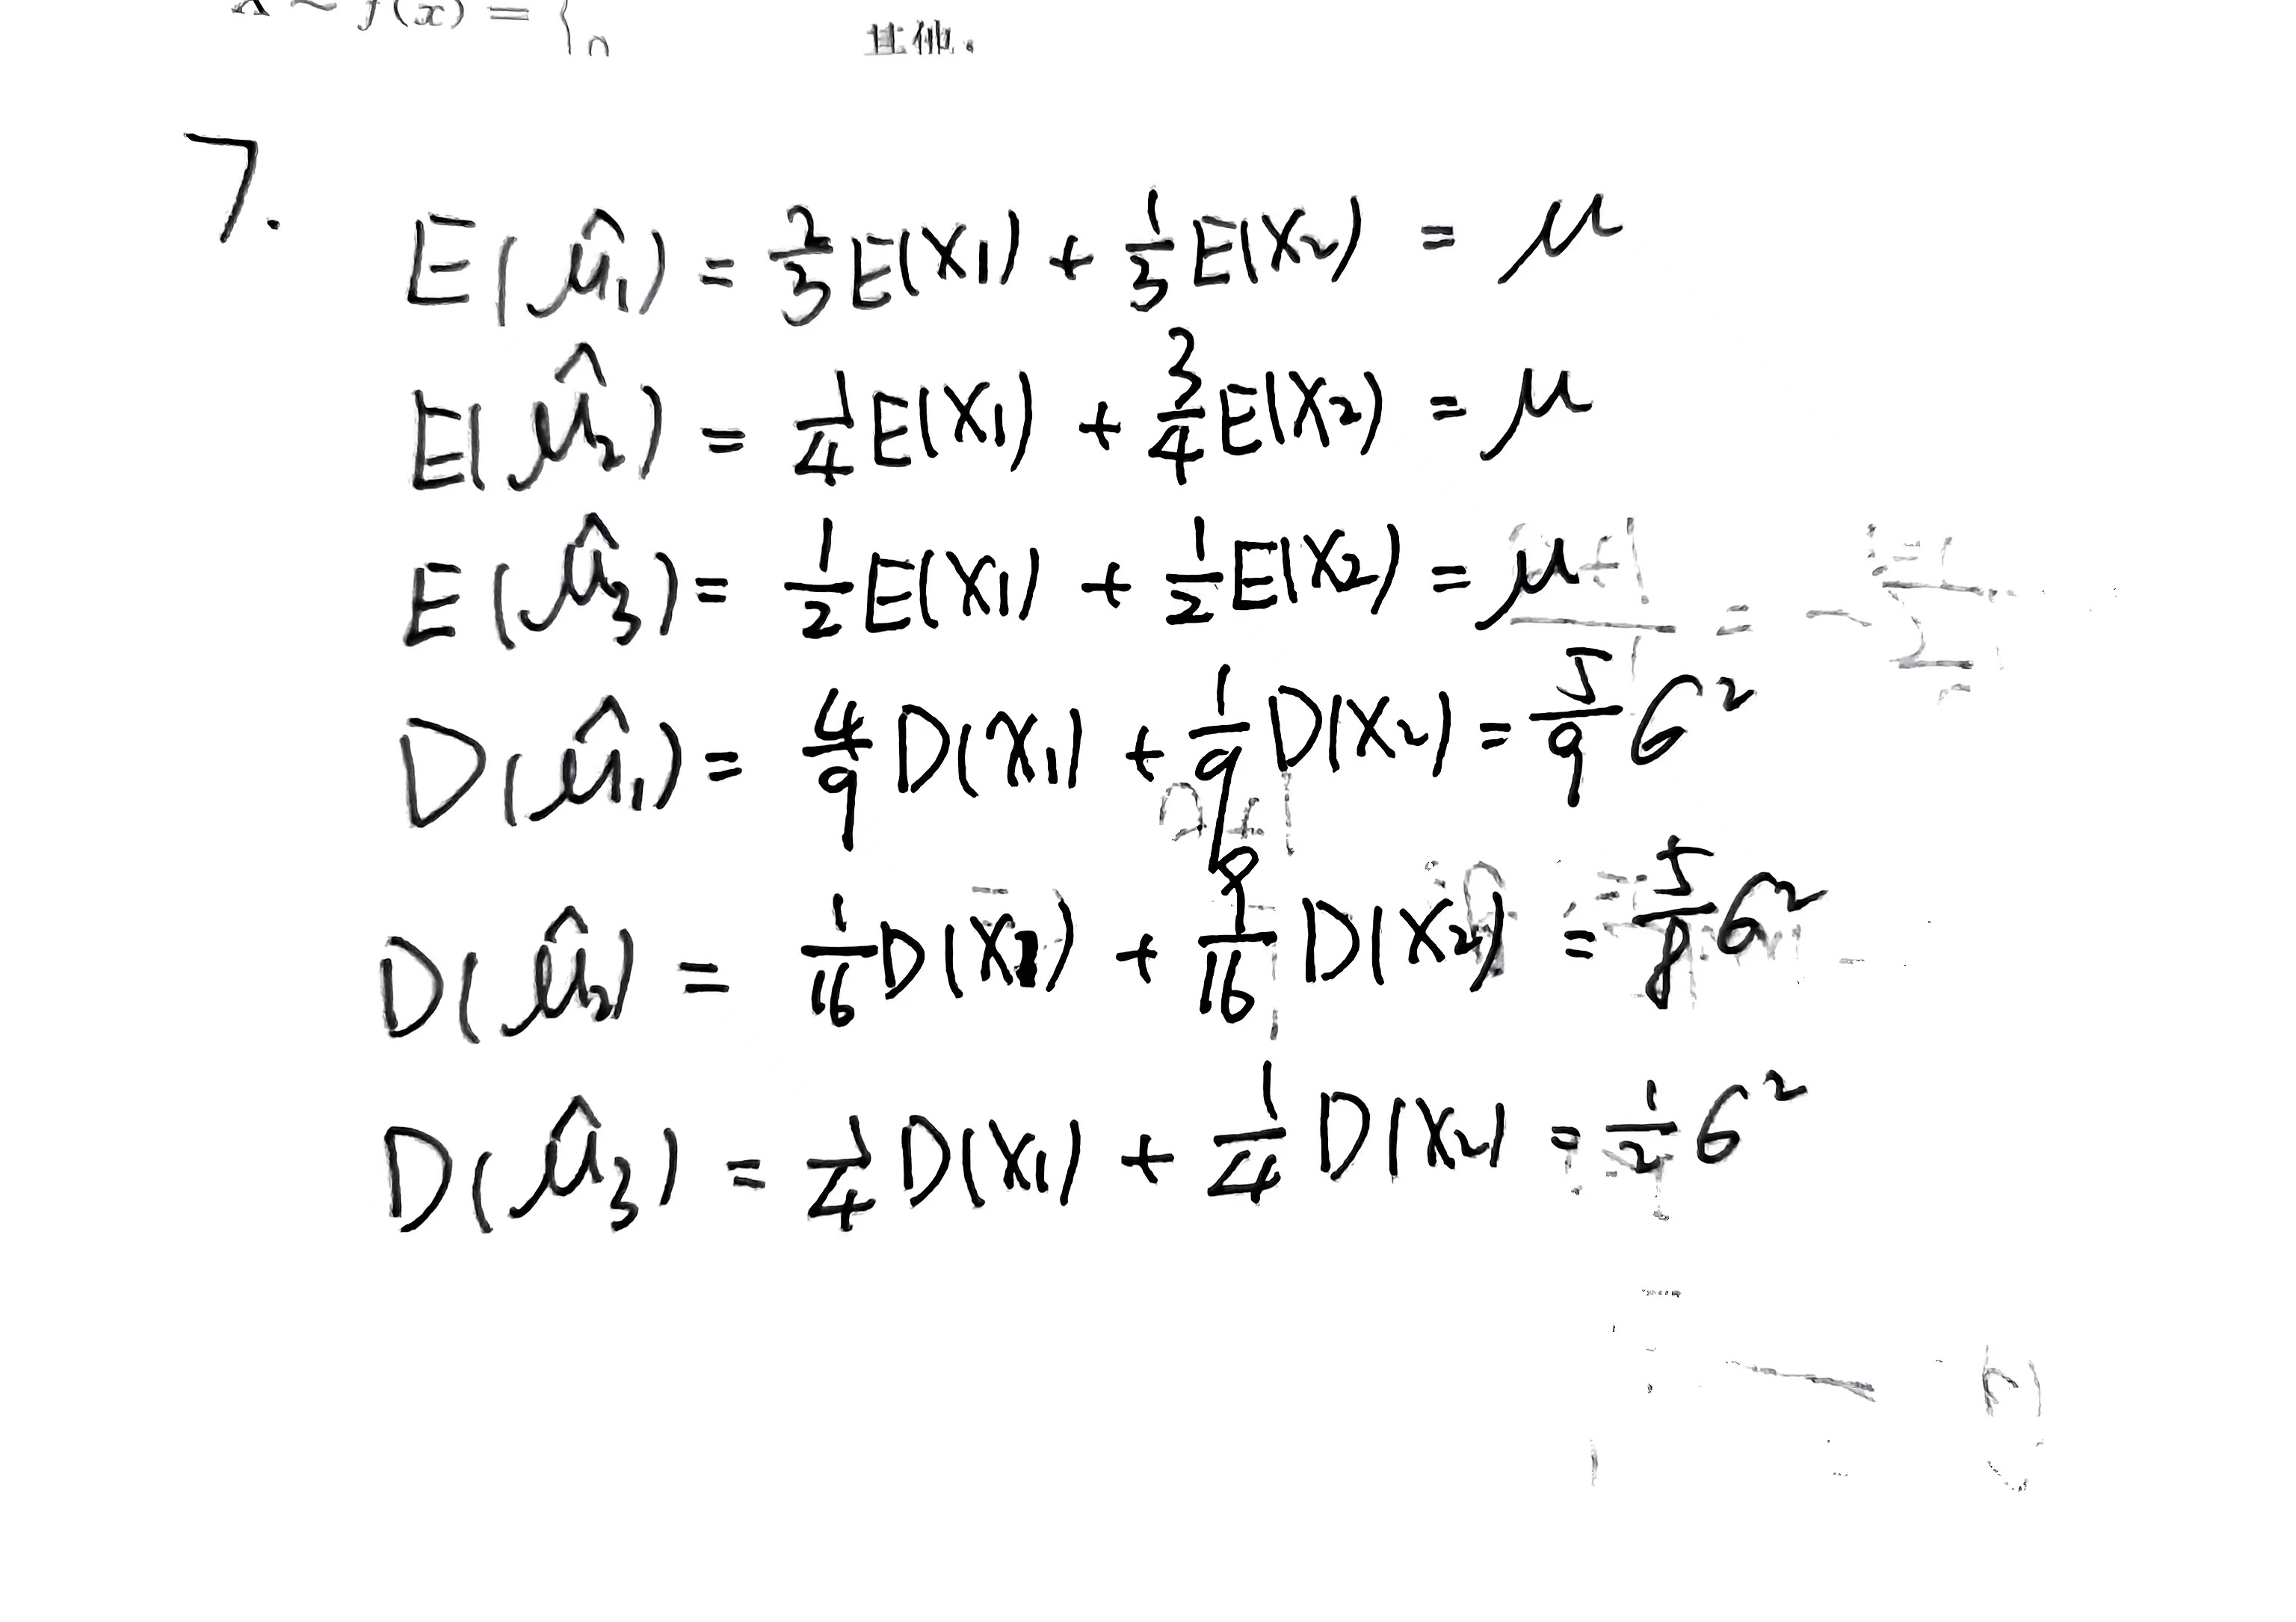 X ~ f(x) = { 0 其他.
7.
E(μ̂₁) = 2/3 E(X₁) + 1/3 E(X₂) = μ
E(μ̂₂) = 1/4 E(X₁) + 3/4 E(X₂) = μ
E(μ̂₃) = 1/2 E(X₁) + 1/2 E(X₂) = μ
D(μ̂₁) = 4/9 D(X₁) + 1/9 D(X₂) = 5/9 σ²
D(μ̂₂) = 1/16 D(X₁) + 9/16 D(X₂) = 5/8 σ²
D(μ̂₃) = 1/4 D(X₁) + 1/4 D(X₂) = 1/2 σ²